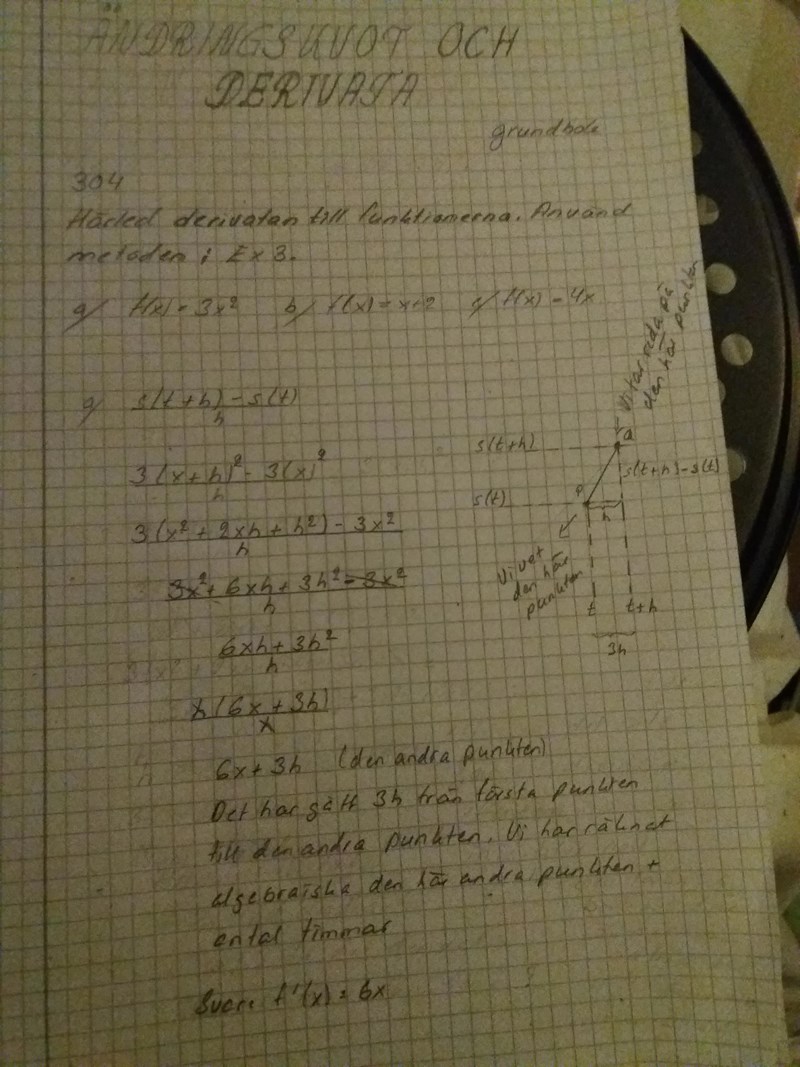 ÄNDRINGSKVOT OCH
DERIVATA
grundbok
304
Härled derivatan till funktionerna. Använd
metoden i Ex 3.
a/ f(x) = 3x² b/ f(x) = x+2 c/ f(x) = 4x
a/ s(t+h) - s(t)
h
3(x+h)² - 3(x)²
h
3(x² + 2xh + h²) - 3x²
h
3x² + 6xh + 3h² - 3x²
h
6xh + 3h²
h
h(6x + 3h)
h
6x + 3h (den andra punkten)
Det har gått 3h från första punkten
till den andra punkten. Vi har räknat
algebraiska den här andra punkten +
antal timmar
Svar: f'(x) = 6x
Vi tar reda på
den här punkten
s(t+h)
Q
s(t+h) - s(t)
s(t)
P
h
Vi vet
den här
punkten
t
t+h
3h